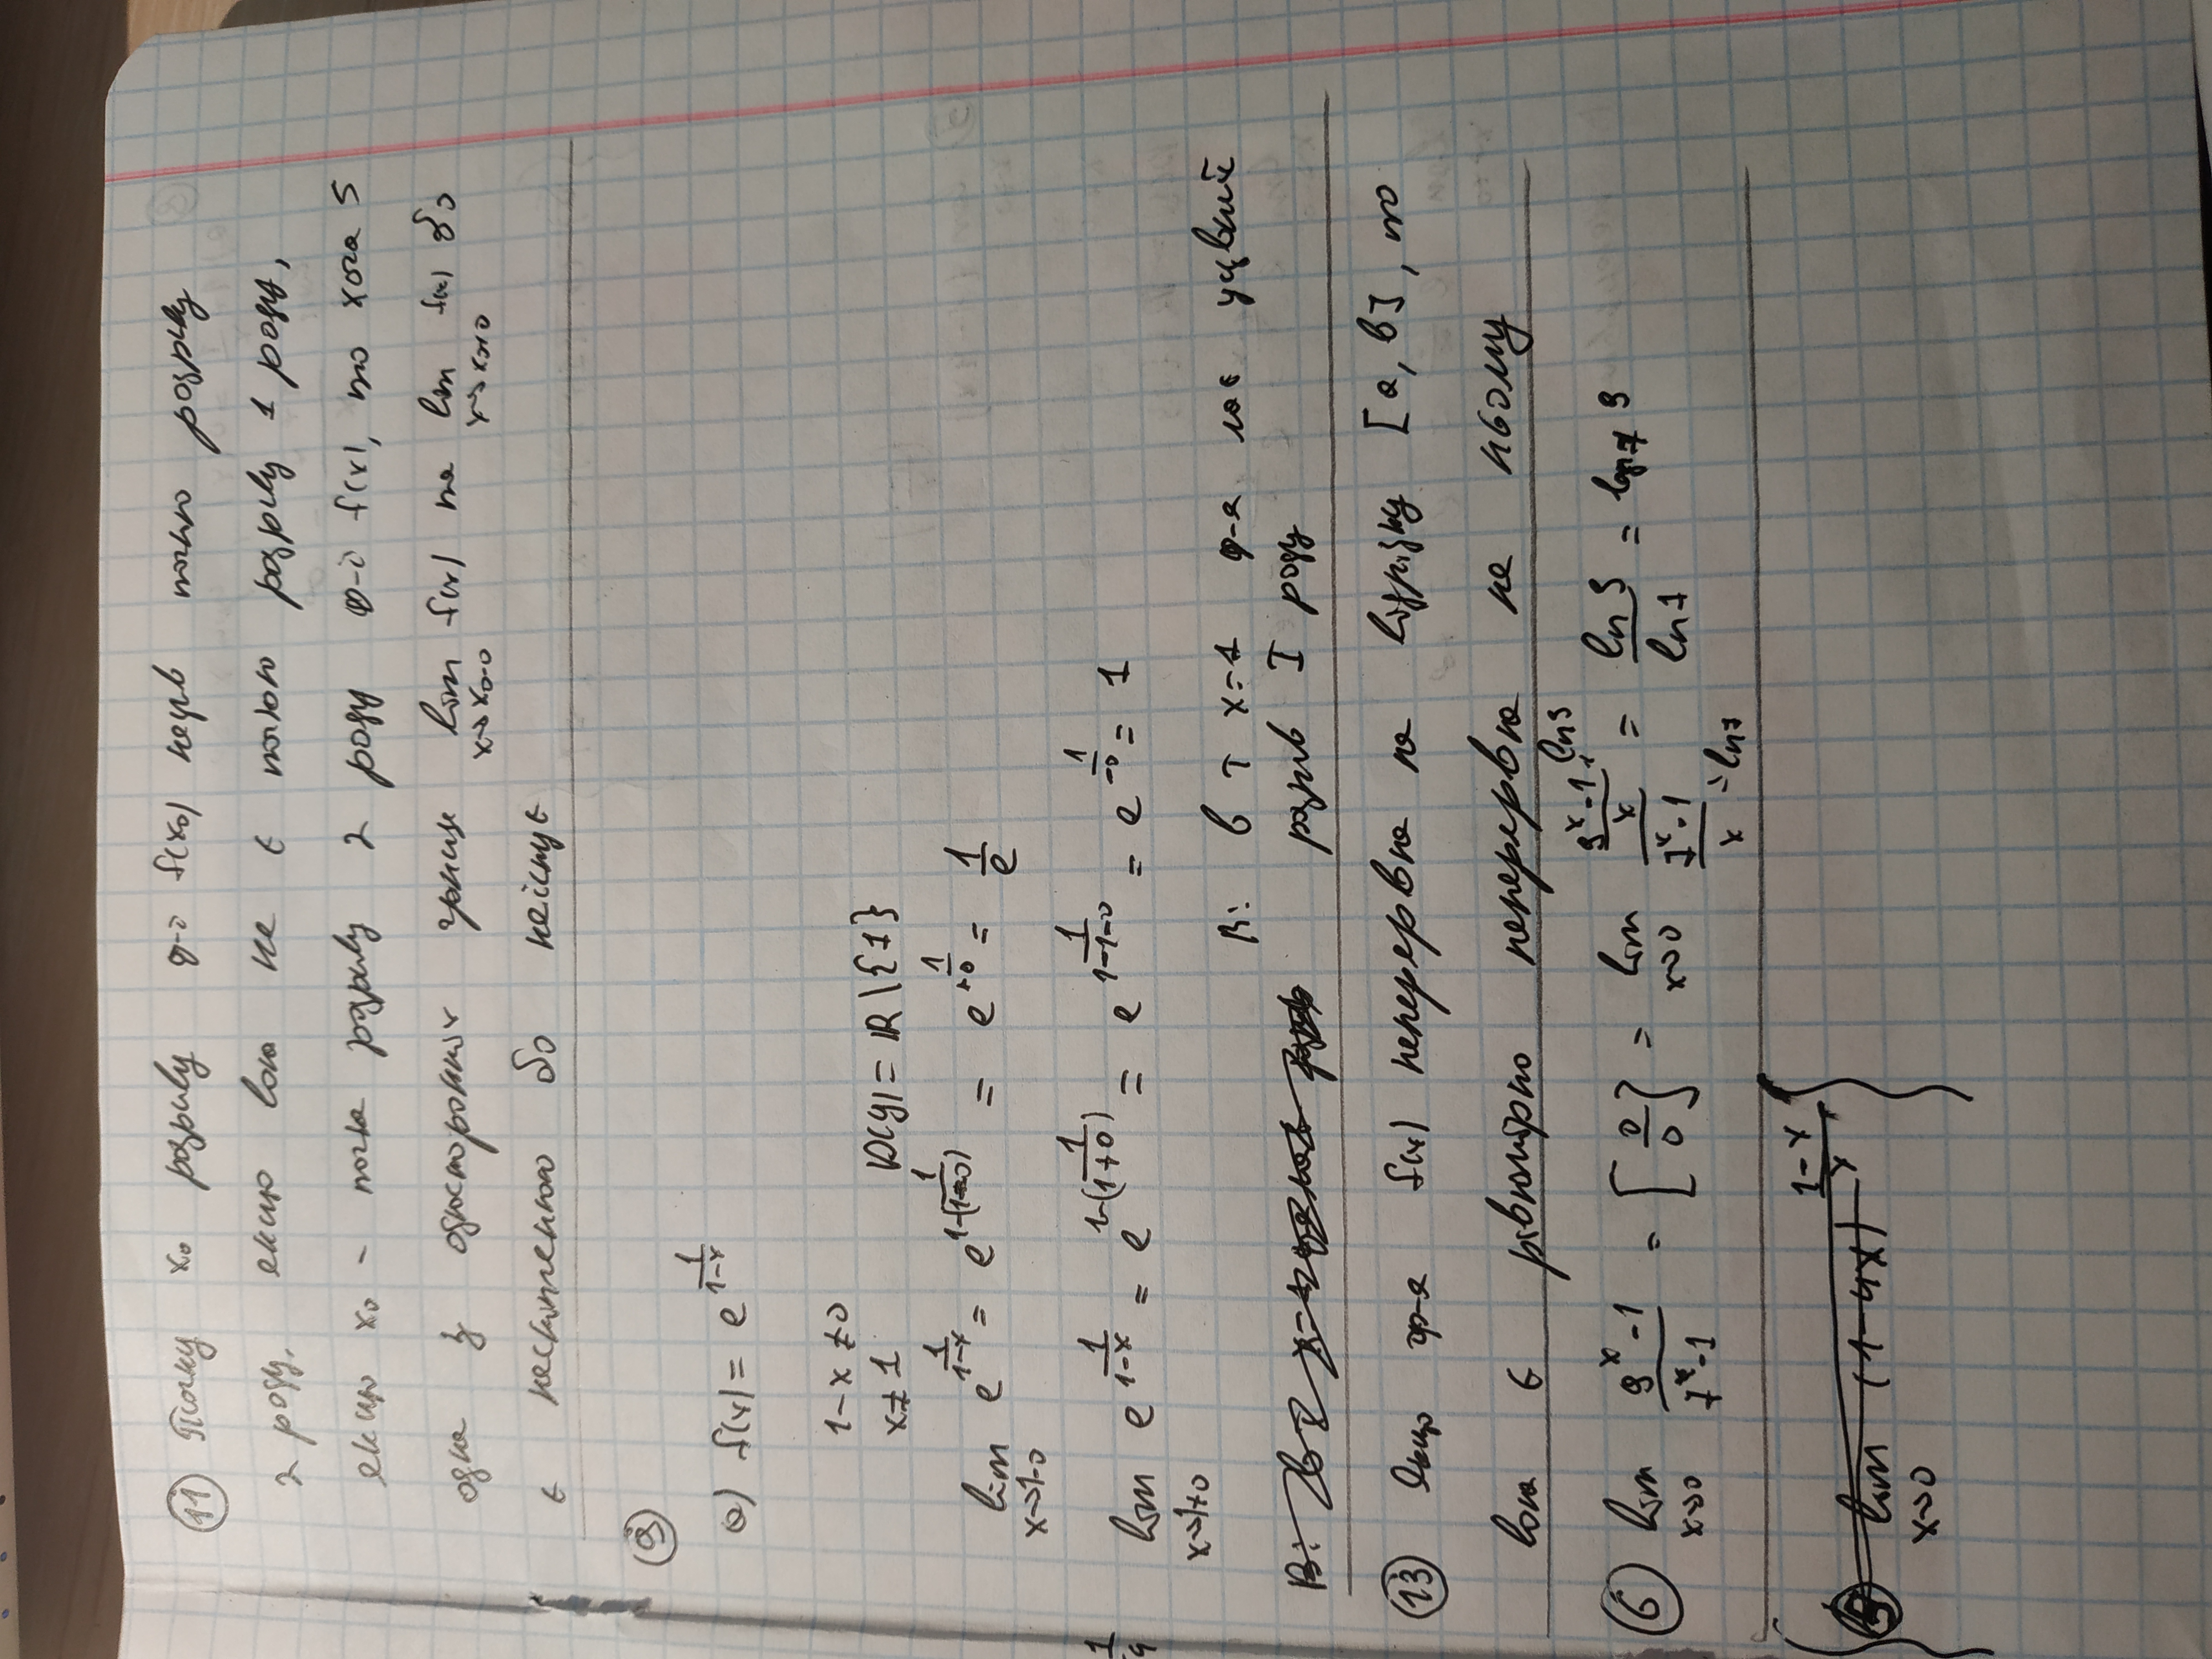 11 Точку x₀ розриву ф-ї f(x₀) назив точкою розриву
2 роду, якщо вона не є точкою розриву 1 роду,
якщо x₀ - точка розриву 2 роду ф-ї f(x), то хоча б
одна з односторонніх границь lim x→x₀-0 f(x) та lim x→x₀+0 f(x) або
є нескінченною або неіснує
9
а) f(x) = e^(1/(1-x))
1-x ≠ 0
x ≠ 1 D(y) = ℝ \ {1}
lim x→1-0 e^(1/(1-x)) = e^(1/(1-(1-0))) = e^(1/+0) = 1/e
1/4
lim x→1+0 e^(1/(1-x)) = e^(1/(1-(1+0))) = e^(1/(1-1-0)) = e^(1/-0) = 1
В: в т x=1 ф-я має
розрив I роду
13 Якщо ф-я f(x) неперервна на відрізку [a, b], то
вона є рівномірно неперервна на ньому
6 lim x→0 (9^x-1)/(7^x-1) = [0/0] = lim x→0 ((9^x-1)/x → ln9)/((7^x-1)/x → ln7) = ln9/ln7 = log₇ 9
5 lim x→0 (1-4x)^((1-x)/x)